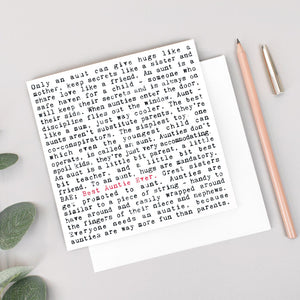 Only an aunt can give hugs like a
mother, keep secrets like a sister and
share love like a friend. An aunt is a
safe haven for a child - someone who
will keep their secrets and is always on
their side. When aunties enter the door,
discipline flies out the window. Aunt -
like a mum, just way cooler. The best
aunts aren't substitute parents, they're
co-conspirators. The simplest toy, one
which even the youngest child can
operate, is called an aunt. Aunties don't
spoil kids, they're just very accommodating
An aunt is a little bit parent, a little
bit teacher, and a little bit best
friend. To an aunt, hugs are mandatory.
BAE; Best Auntie Ever. Great sisters
get promoted to aunt. Aunties are
similar to a piece of string - handy to
have around and easily wrapped around
the fingers of their niece and nephews.
Everyone needs an auntie, because
aunties are way more fun than parents.